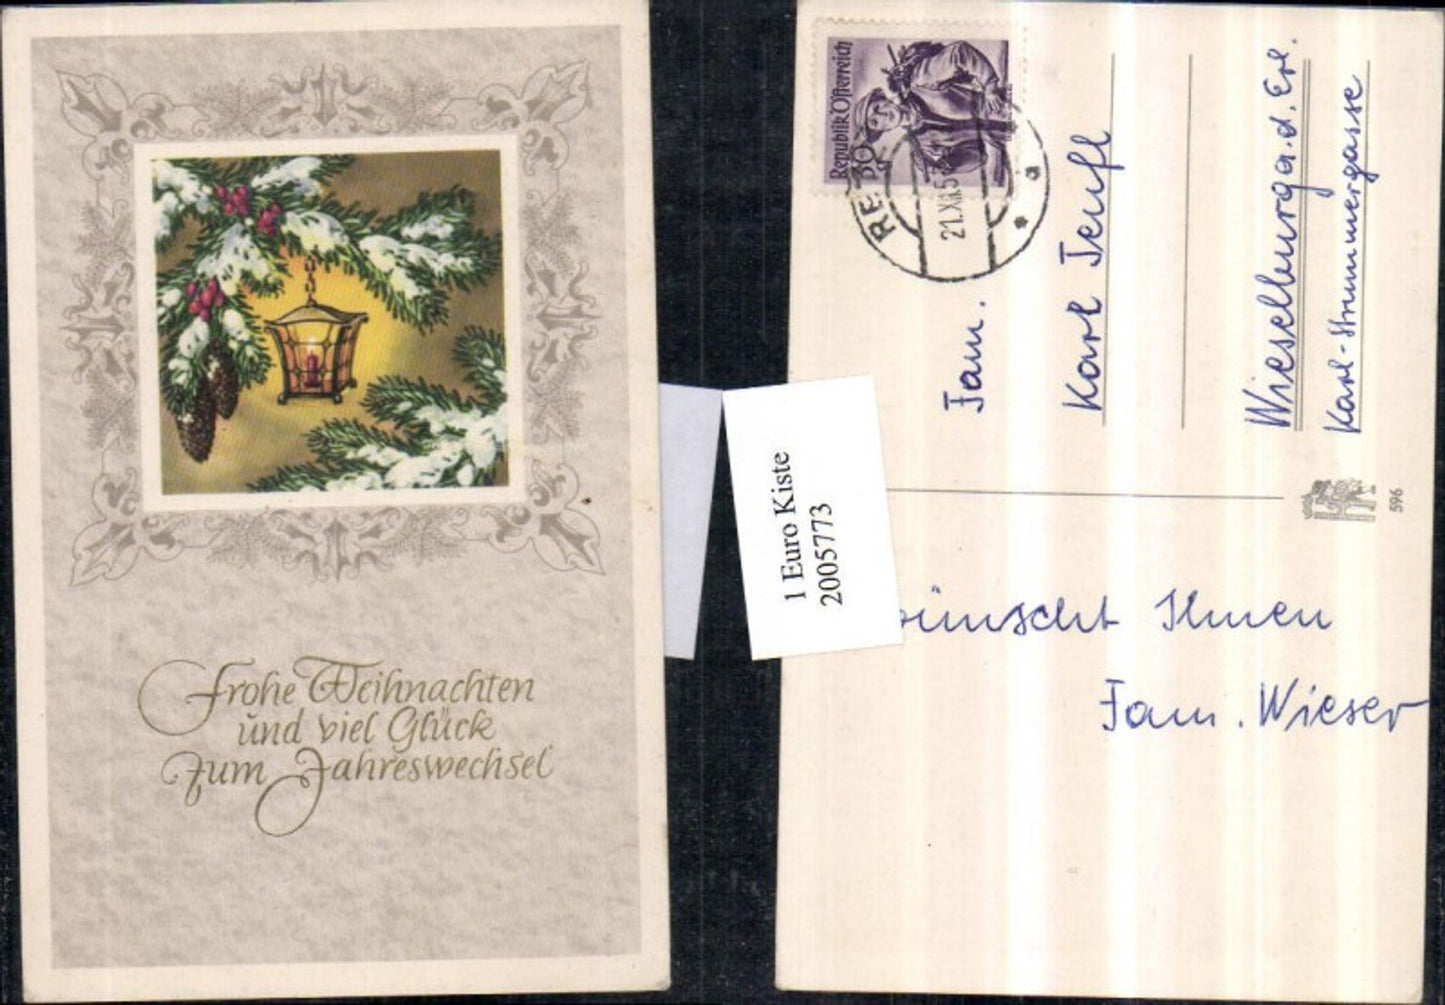 Frohe Weihnachten
und viel Glück
zum Jahreswechsel
1 Euro Kiste
2005773
Republik Österreich
30
21.XII.5
Fam.
Karl Teufl
Wieselburg a. d. Erl.
Karl-Strummergasse
596
wünscht Ihnen
Fam. Wieser